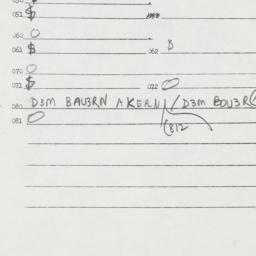 051 $
060 0
061 $ 062 $
070 0
072 $ 072 0
080 D3M BAUERN AKERN / D3M BOU3R
081 0 (B12